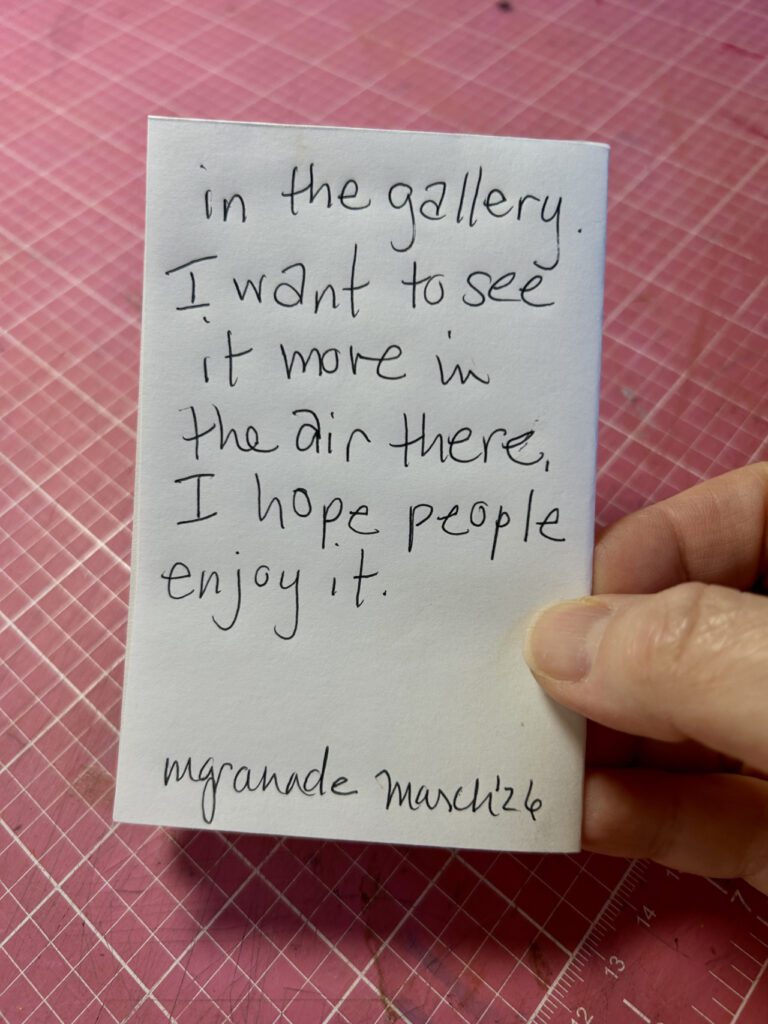 in the gallery.
I want to see
it more in
the air there.
I hope people
enjoy it.
mgranade March '26
14
13
12
7